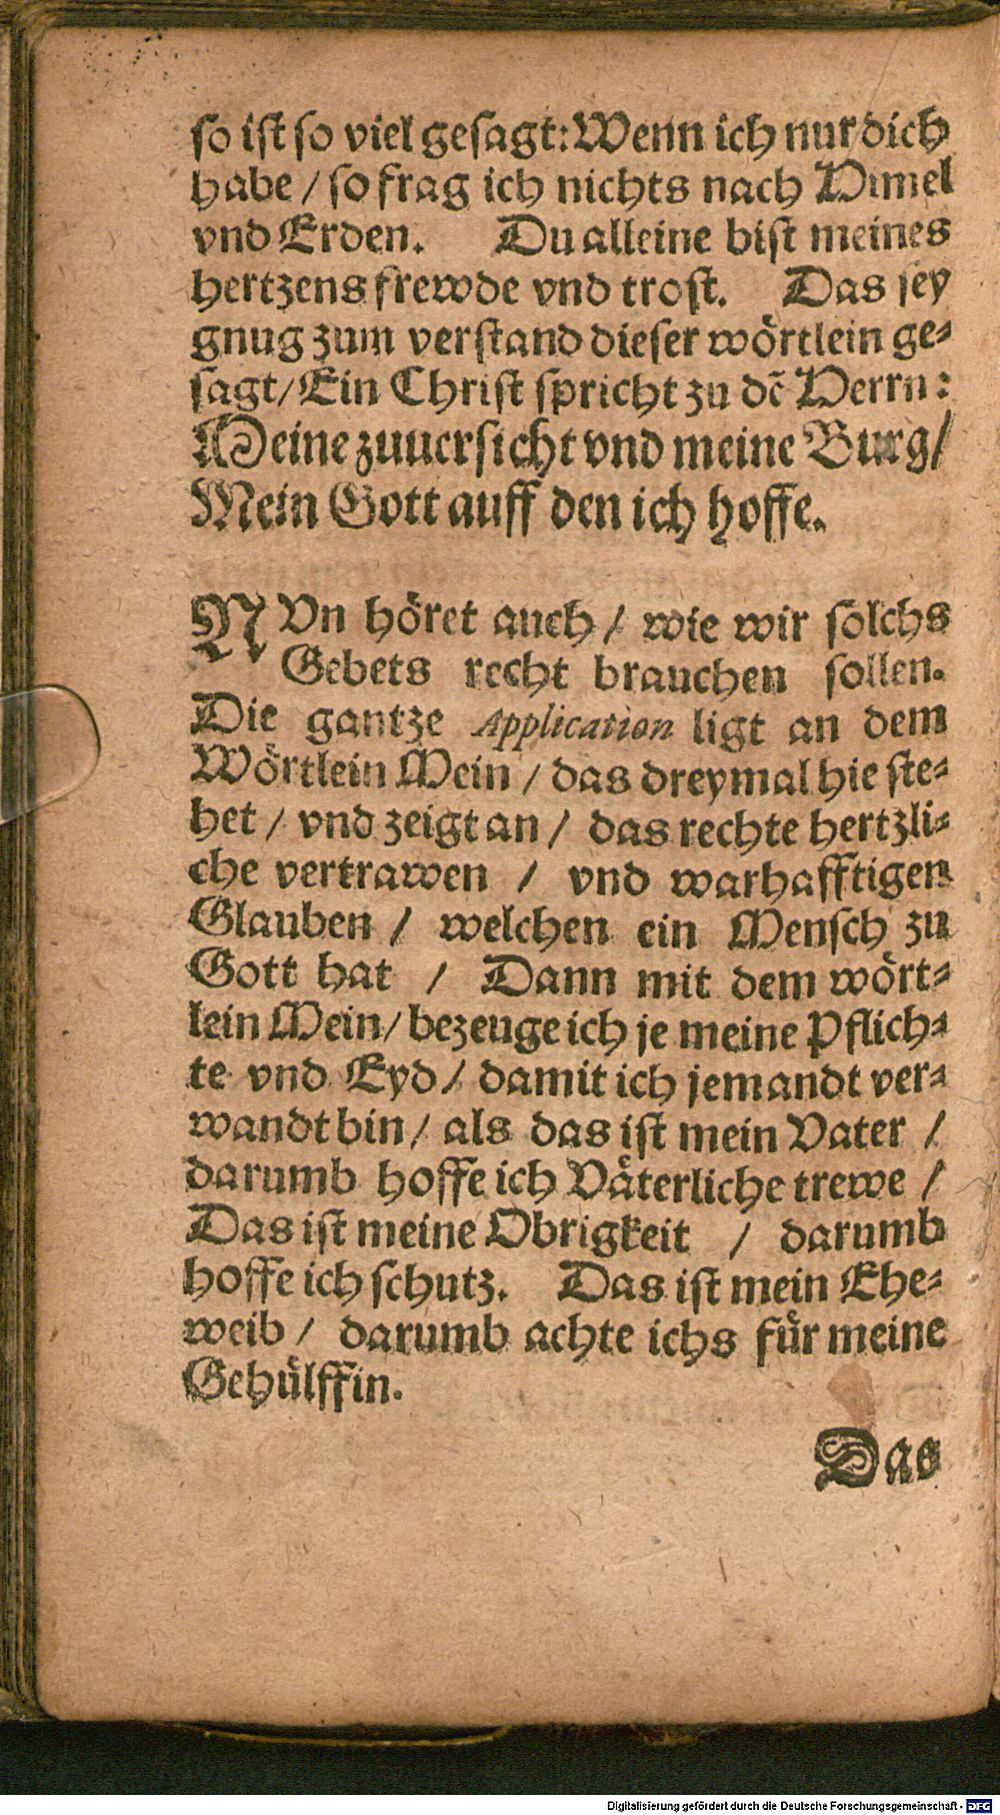 so ist so viel gesagt: Wenn ich nur dich
habe / so frag ich nichts nach Himel
vnd Erden. Du alleine bist meines
hertzens frewde vnd trost. Das sey
gnug zum verstand dieser wörtlein ge-
sagt / Ein Christ spricht zu dē Herrn:
Meine zuuersicht vnd meine Burg /
Mein Gott auff den ich hoffe.
NVn höret auch / wie wir solchs
Gebets recht brauchen sollen.
Die gantze Application ligt an dem
Wörtlein Mein / das dreymal hie ste-
het / vnd zeigt an / das rechte hertzli-
che vertrawen / vnd warhafftigen
Glauben / welchen ein Mensch zu
Gott hat / Dann mit dem wört-
lein Mein / bezeuge ich je meine Pflich-
te vnd Eyd / damit ich jemandt ver-
wandt bin / als das ist mein Vater /
darumb hoffe ich Väterliche trewe /
Das ist meine Obrigkeit / darumb
hoffe ich schutz. Das ist mein Ehe-
weib / darumb achte ichs für meine
Gehülffin.
Das
Digitalisierung gefördert durch die Deutsche Forschungsgemeinschaft - DFG